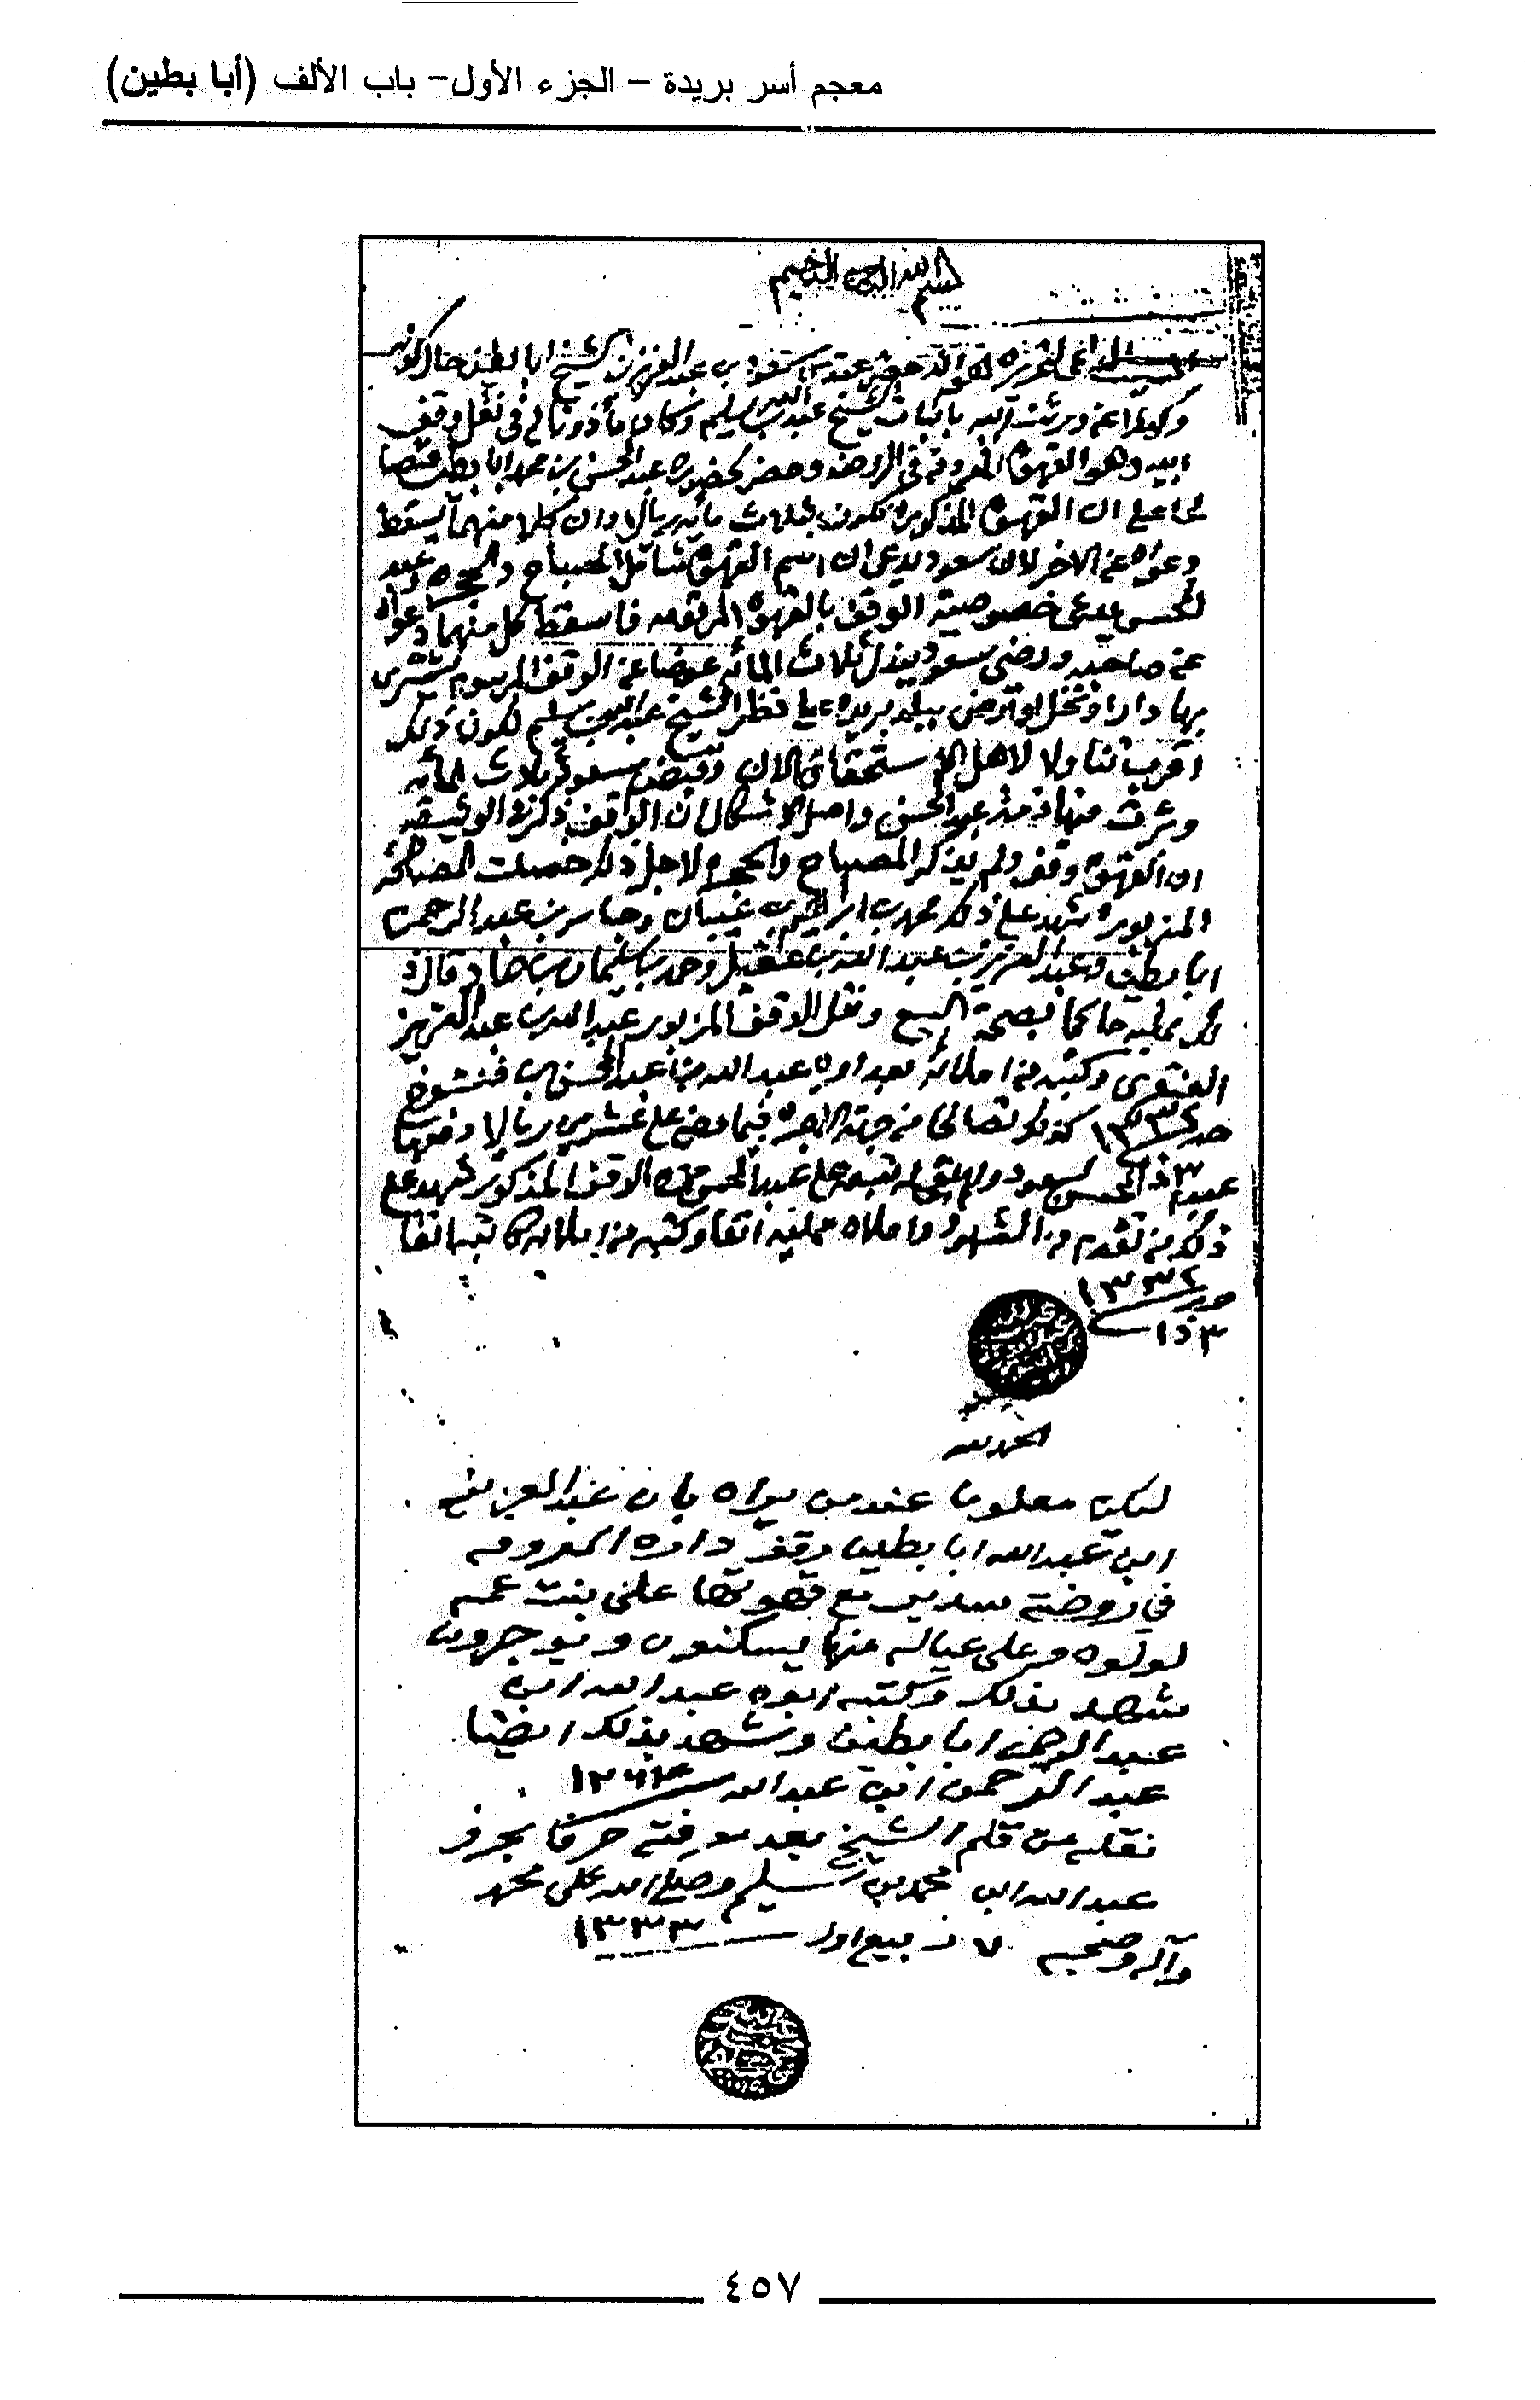 معجم أسر بريدة – الجزء الأول– باب الألف (أبا بطين)
بسم الله الرحمن الرحيم
حضر عندي سعود بن عبد العزيز بن الشيخ ابا بطين حال كونه
وكيلا عن ورثة الشيخ عبدالله بن سليم وكان مأذونا لي في نقل وقف
ابيه وهو القهوة المعروفة في الروضه وحضر لحضوره عبد المحسن بن محمد ابا بطين
على ان القهوة المذكورة تكون بثلاث مأيه ريال وان كلا منهما يسقط
دعواه عن الاخر لان سعود يدعي ان اسم القهوة شامل المصباح وعبد
المحسن يدعي خصوصية الوقف بالقهوة المرقومه فاسقط كل منهما دعواه
عن صاحبه ورضي سعود ببذل ثلاث المائه عوضا عن الوقف المرسوم يشتري
بها دارا او نخل او ارض ببلد بريده على نظر الشيخ عبدالله بن سليم لكون ذلك
اقرب تناولا لاهل الاستحقاق الان وقبض سعود ثلاث المأيه
وبرئت منها ذمة عبد المحسن واصل الاشكال ان الواقف ذكر في الوثيقه
ان القهوة وقف ولم يذكر المصباح لاجل ذلك حصلت المصالحه
المزبورة شهد على ذلك محمد بن ابراهيم بن غيبان وجاسر بن عبد الرحمن
ابا بطين وعبد العزيز بن عبد الله بن عقيل وحمد بن سليمان بن حماد قال ذلك
ممليه حاكما بصحة البيع ونقل الوقف المزبور عبدالله بن عبد العزيز
العنقري وكتبه من املائه بعد امره عبد الله بن عبد المحسن بن فنتوخ
كذلك تصالحا من جهة الاجره فيما مضى على عشرين ريالا دفعها
عبد المحسن لسعود ولم يبقى له تبعه على عبد المحسن من هذه الوقف المذكور شهد على
ذلك من تقدم من الشهود واملاه ممليه انفا وكتبه من املائه كاتبه انفا
١٣٣٢
الحمد لله
ليكن معلوما عند من يراه بان عبد العزيز
ابن عبدالله ابا بطين وقف داره المعروفه
في روضة سدير مع قهوتها على بنت عمه
لولوه وعلى عياله منها يسكنون ويوجرون
شهد بذلك وكتبه ابوه عبد الله ابن
عبد الرحمن ابا بطين وشهد بذلك ايضا
عبد الرحمن ابن عبد الله
نقله من قلم الشيخ بعد معرفته حرفا بحرف
عبدالله ابن محمد بن سليم وصلى الله على محمد
وآله وصحبه ٧ ربيع اول ١٣٣٣
٤٥٧